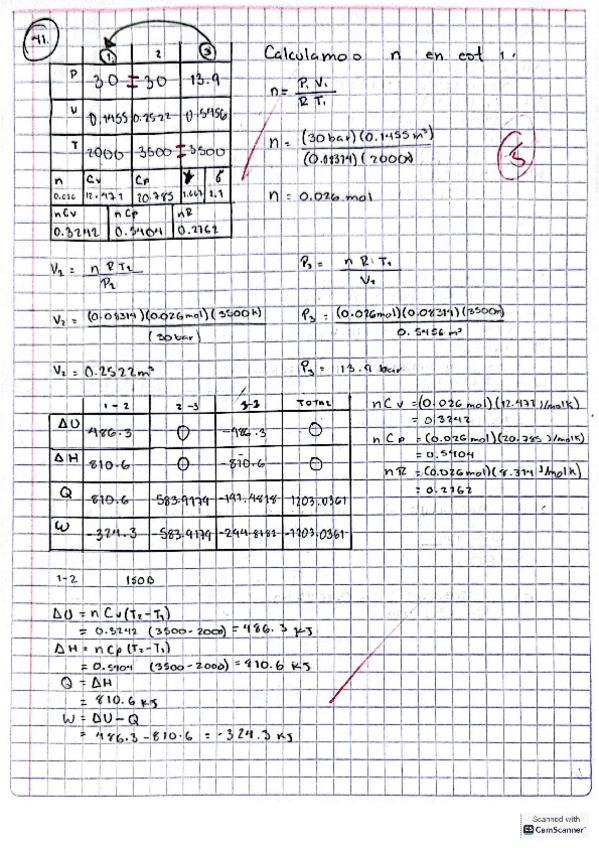 41.
① 2 ③
P 30 = 30 13.9
V 0.1455 0.2522 0.5456
T 2000 3500 = 3500
n Cv Cp γ
0.026 12.471 20.785 1.667
nCv nCp nR
0.3242 0.5404 0.2162
Calculamos n en est 1.
n = P₁ V₁ / R T₁
n = (30 bar)(0.1455 m³) / (0.08314)(2000)
n = 0.026 mol
5
V₂ = n R T₂ / P₂
P₃ = n R T₃ / V₃
V₂ = (0.08314)(0.026mol)(3500K) / (30 bar)
P₃ = (0.026mol)(0.08314)(3500) / 0.5456 m³
V₂ = 0.2522 m³
P₃ = 13.9 bar
1-2 2-3 3-1 TOTAL
ΔU 486.3 0 -486.3 0
ΔH 810.6 0 -810.6 0
Q 810.6 583.9179 -191.4818 1203.0361
W -324.3 -583.9179 -294.8182 -1203.0361
nCv = (0.026 mol)(12.471 J/molK)
= 0.3242
nCp = (0.026 mol)(20.785 J/molK)
= 0.5404
nR = (0.026 mol)(8.314 J/molK)
= 0.2162
1-2 ISOB
ΔU = nCv(T₂-T₁)
= 0.3242 (3500-2000) = 486.3 KJ
ΔH = nCp(T₂-T₁)
= 0.5404 (3500-2000) = 810.6 KJ
Q = ΔH
= 810.6 KJ
W = ΔU - Q
= 486.3 - 810.6 = -324.3 KJ
Scanned with
CS CamScanner